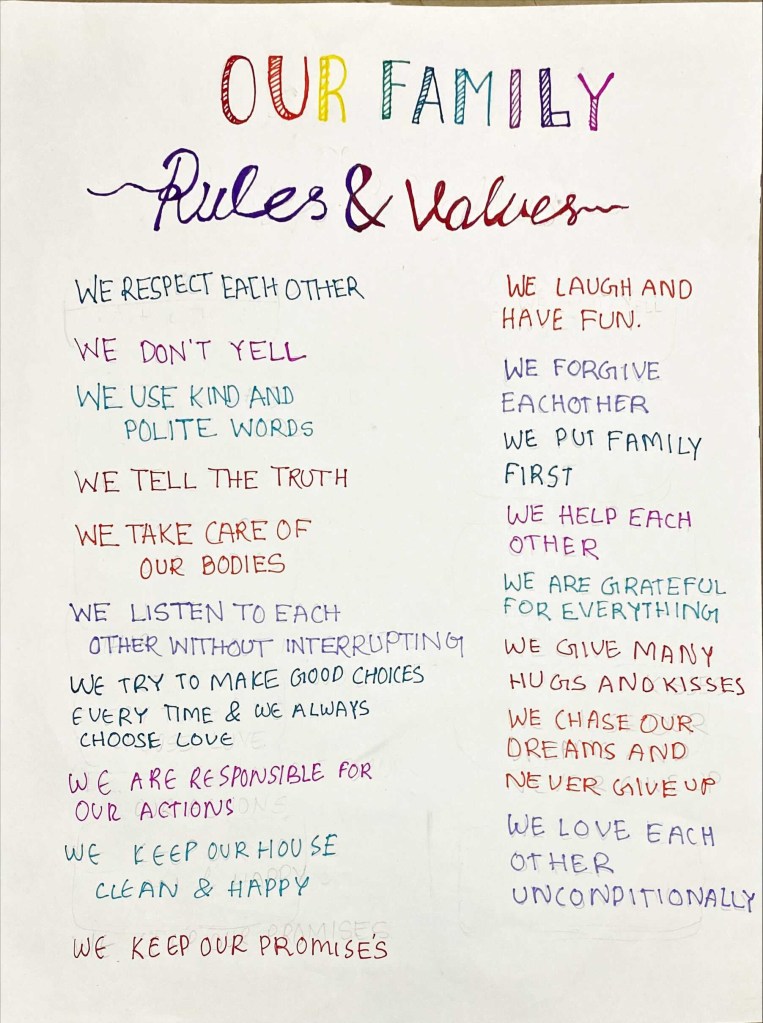 OUR FAMILY
Rules & Values
WE RESPECT EACH OTHER
WE DON'T YELL
WE USE KIND AND
POLITE WORDS
WE TELL THE TRUTH
WE TAKE CARE OF
OUR BODIES
WE LISTEN TO EACH
OTHER WITHOUT INTERRUPTING
WE TRY TO MAKE GOOD CHOICES
EVERY TIME & WE ALWAYS
CHOOSE LOVE
WE ARE RESPONSIBLE FOR
OUR ACTIONS
WE KEEP OUR HOUSE
CLEAN & HAPPY
WE KEEP OUR PROMISE'S
WE LAUGH AND
HAVE FUN.
WE FORGIVE
EACHOTHER
WE PUT FAMILY
FIRST
WE HELP EACH
OTHER
WE ARE GRATEFUL
FOR EVERYTHING
WE GIVE MANY
HUGS AND KISSES
WE CHASE OUR
DREAMS AND
NEVER GIVE UP
WE LOVE EACH
OTHER
UNCONDITIONALLY